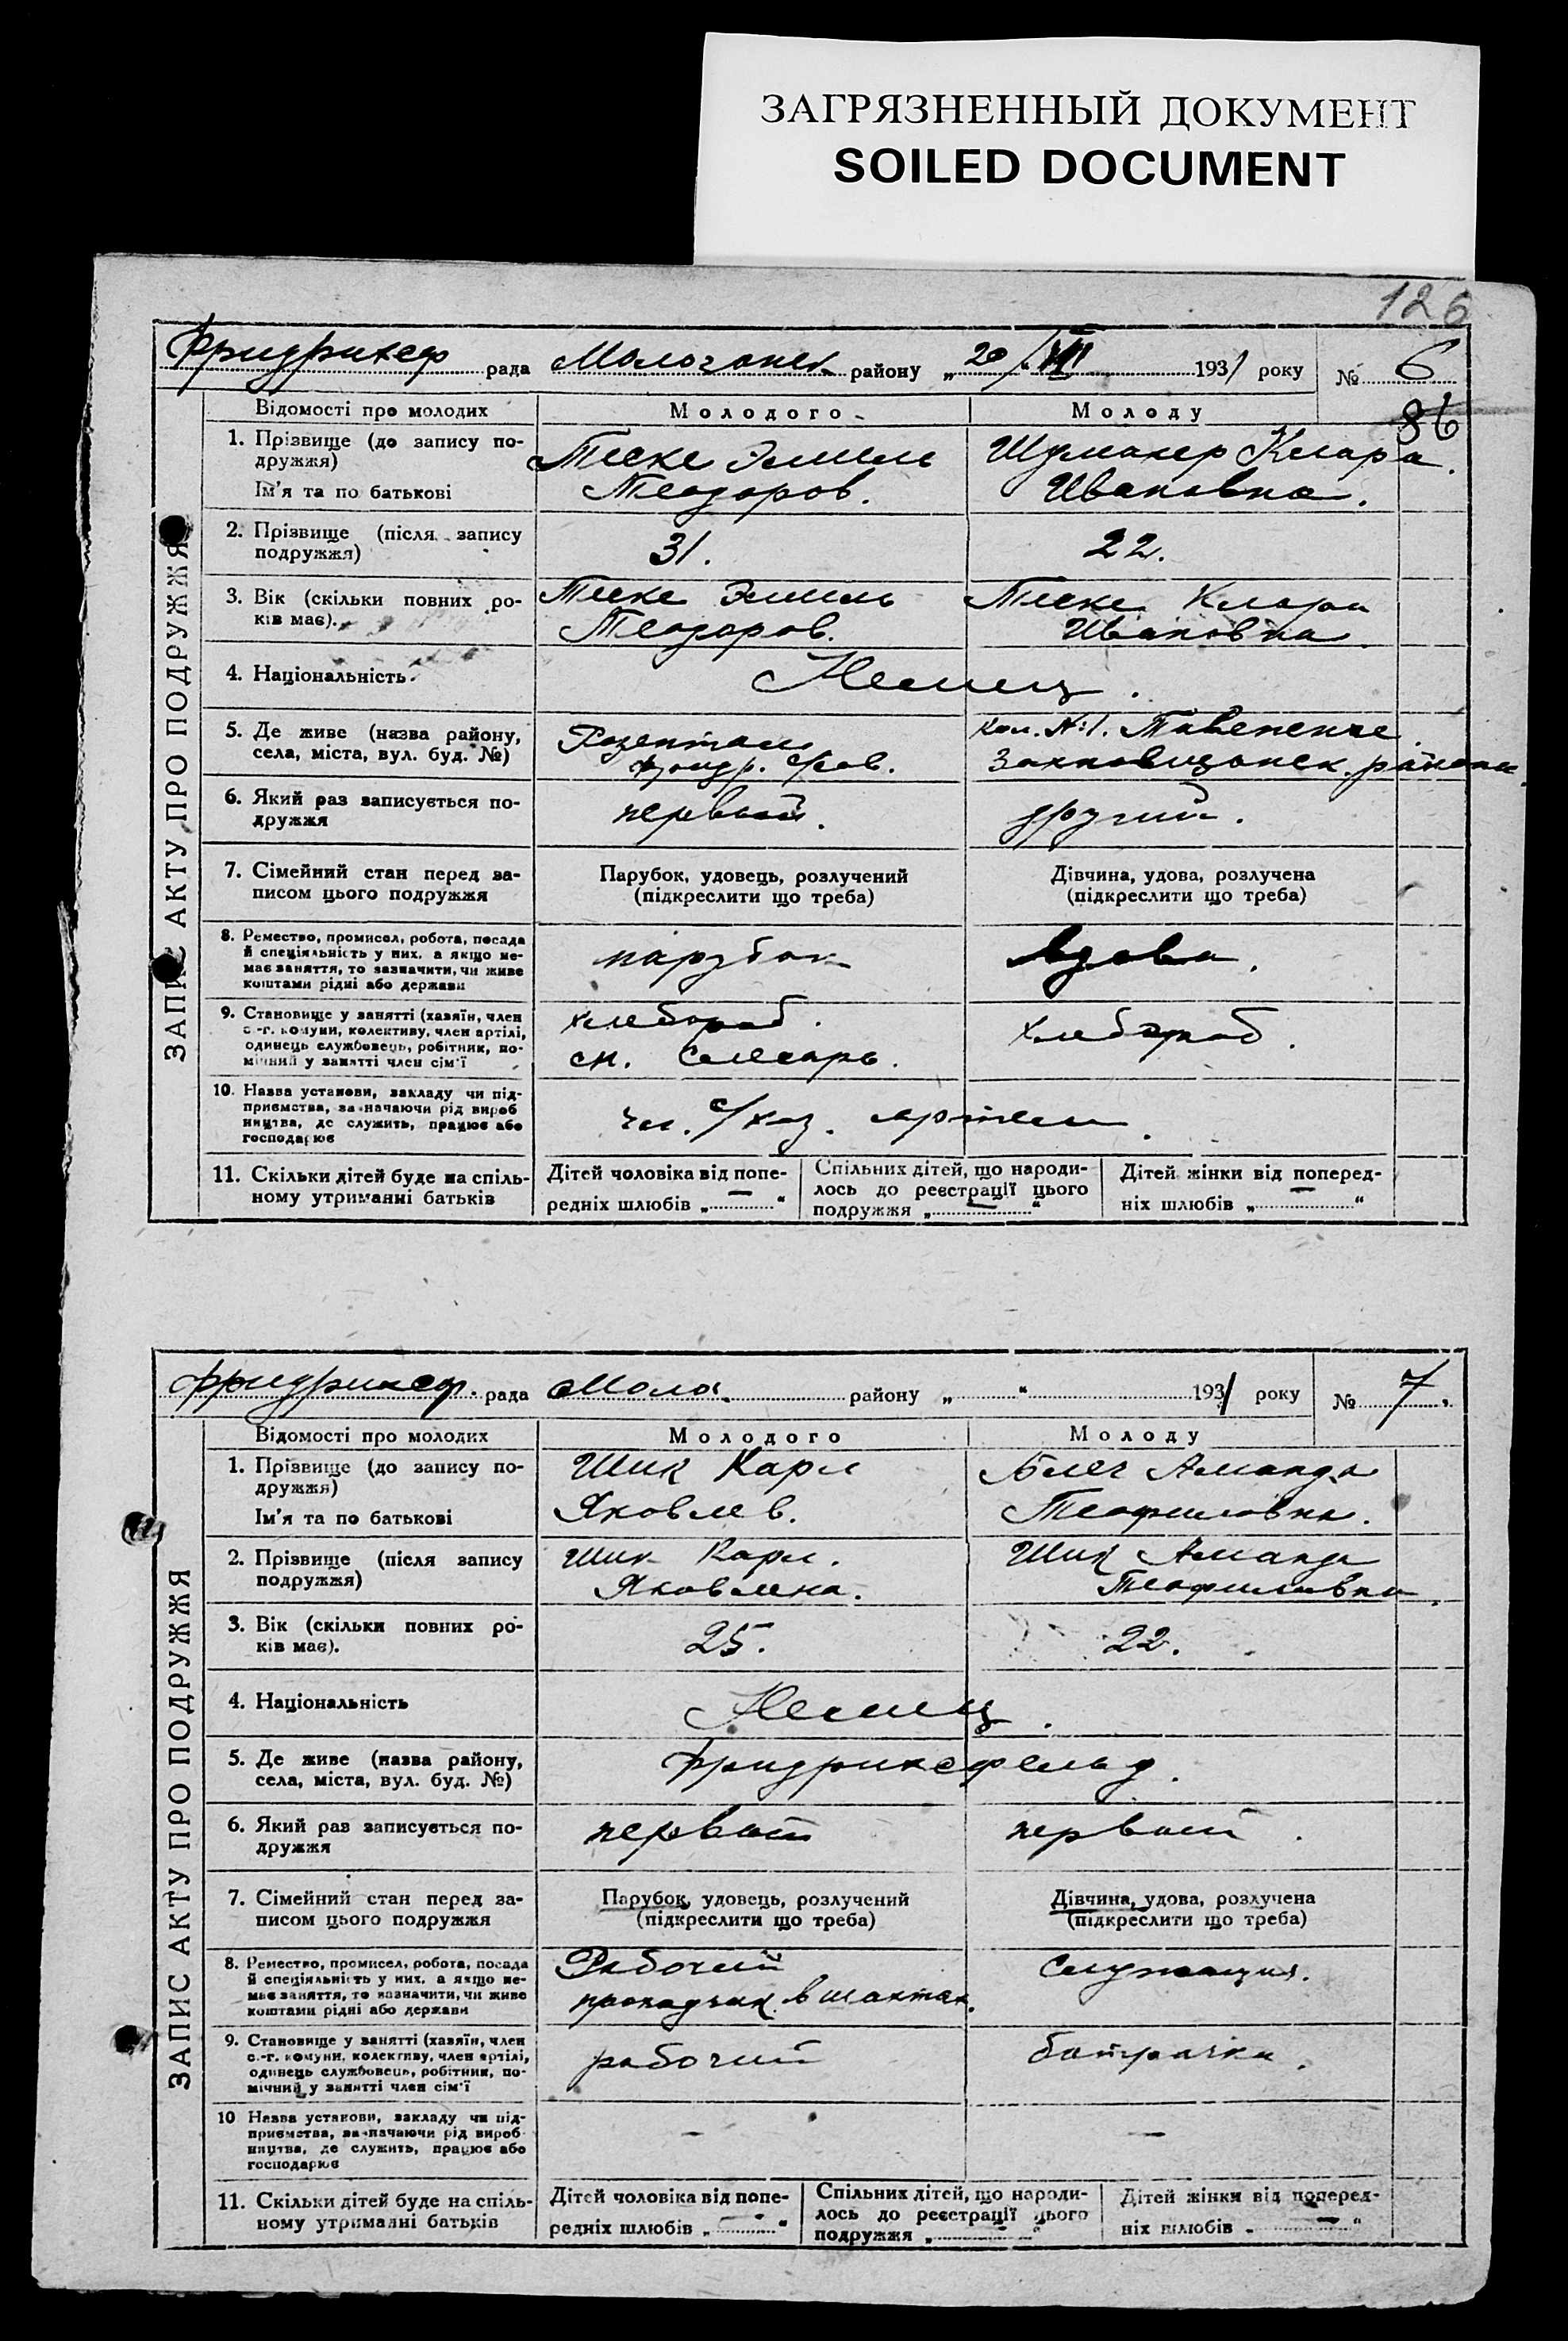 ЗАГРЯЗНЕННЫЙ ДОКУМЕНТ
SOILED DOCUMENT
126
Фридрихсф рада Молочанск району „ 20/VII 1931 року № 6
86
Відомості про молодих Молодого Молоду
1. Прізвище (до запису по-
дружжя)
Ім'я та по батькові
Теске Эмиль
Теодоров.
Шумахер Клара
Ивановна.
2. Прізвище (після запису
подружжя)
31. 22.
3. Вік (скільки повних ро-
ків має).
Теске Эмиль
Теодоров.
Теске Клара
Ивановна
4. Національність
Немец.
5. Де живе (назва району,
села, міста, вул. буд. №)
Розенталь
фридр. с/сов.
кол. №1.
района
6. Який раз записується по-
дружжя
первый. другий.
7. Сімейний стан перед за-
писом цього подружжя
Парубок, удовець, розлучений
(підкреслити що треба)
Дівчина, удова, розлучена
(підкреслити що треба)
8. Ремество, промисел, робота, посада
й спеціяльність у них, а якщо не-
має заняття, то зазначити, чи живе
коштами рідні або держави
парубок вдова.
9. Становище у занятті (хазяїн, член
с.-г. комуни, колективу, член артілі,
одинець службовець, робітник, по-
мічний у занятті член сім'ї
хлебороб.
сл. Слесарь.
хлебороб.
10. Назва установи, закладу чи під-
приємства, зазначаючи рід вироб
ництва, де служить, працює або
господарює
чл. с/хоз. артели.
11. Скільки дітей буде на спіль-
ному утриманні батьків
Дітей чоловіка від попе-
редніх шлюбів „ — “
Спільних дітей, що народи-
лось до реєстрації цього
подружжя „ — “
Дітей жінки від поперед-
ніх шлюбів „ — “
ЗАПИС АКТУ ПРО ПОДРУЖЖЯ
Фридрихсф. рада Молоч. району „ “ 1931 року № 7.
Відомості про молодих Молодого Молоду
1. Прізвище (до запису по-
дружжя)
Ім'я та по батькові
Шик Карл
Яковлев.
Блех Аманда
Теофиловна.
2. Прізвище (після запису
подружжя)
Шик Карл.
Яковлена.
Шик Аманда
Теофиловна.
3. Вік (скільки повних ро-
ків має).
25. 22.
4. Національність
Немец.
5. Де живе (назва району,
села, міста, вул. буд. №)
Фридрихсфельд.
6. Який раз записується по-
дружжя
первый первый.
7. Сімейний стан перед за-
писом цього подружжя
Парубок, удовець, розлучений
(підкреслити що треба)
Дівчина, удова, розлучена
(підкреслити що треба)
8. Ремество, промисел, робота, посада
й спеціяльність у них, а якщо не-
має заняття, то зазначити, чи живе
коштами рідні або держави
Рабочий
в шахтах.
Служащия.
9. Становище у занятті (хазяїн, член
с.-г. комуни, колективу, член артілі,
одинець службовець, робітник, по-
мічний у занятті член сім'ї
рабочий батрачка.
10 Назва установи, закладу чи під-
приємства, зазначаючи рід вироб
ництва, де служить, працює або
господарює
— —
11. Скільки дітей буде на спіль-
ному утриманні батьків
Дітей чоловіка від попе-
редніх шлюбів „ — “
Спільних дітей, що народи-
лось до реєстрації цього
подружжя „ — “
Дітей жінки від поперед-
ніх шлюбів „ — “
ЗАПИС АКТУ ПРО ПОДРУЖЖЯ